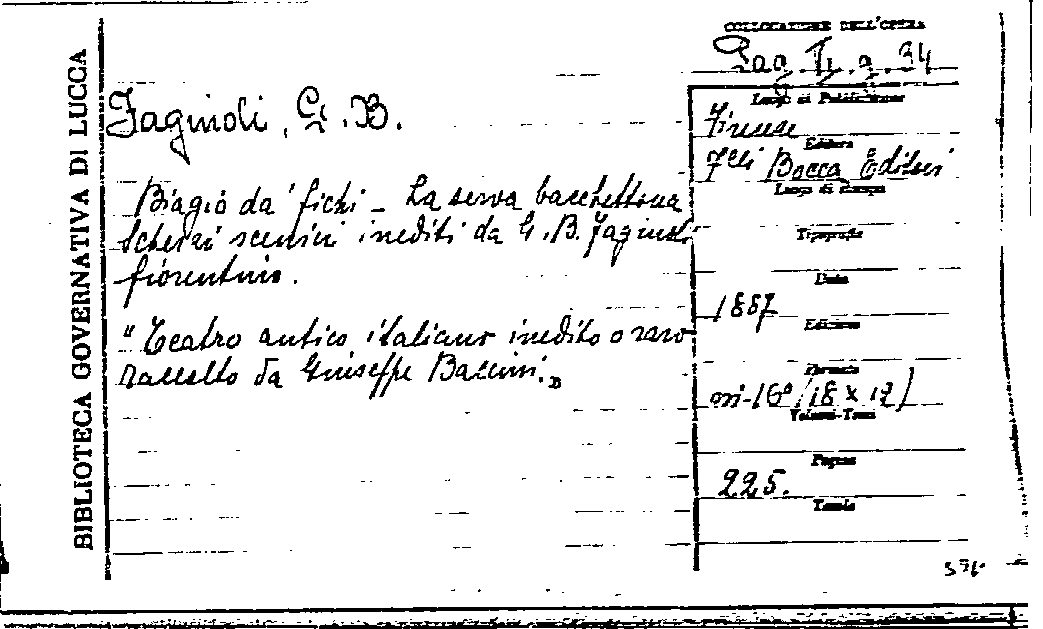 BIBLIOTECA GOVERNATIVA DI LUCCA
COLLOCAZIONE DELL'OPERA
Pag. I. g. 34
Fagiuoli, G. B.
Biagio da' fichi - La serva bacchettona
scherzi scenici inediti da G. B. Fagiuoli
fiorentino.
"Teatro antico italiano inedito o raro
raccolto da Giuseppe Baccini."
Luogo di Pubblicazione
Firenze
Editore
F.lli Bocca Editori
Luogo di stampa
Tipografia
Data
1887
Edizione
Formato
in-16° (18 x 12)
Volumi-Tomi
Pagine
225.
Tavole